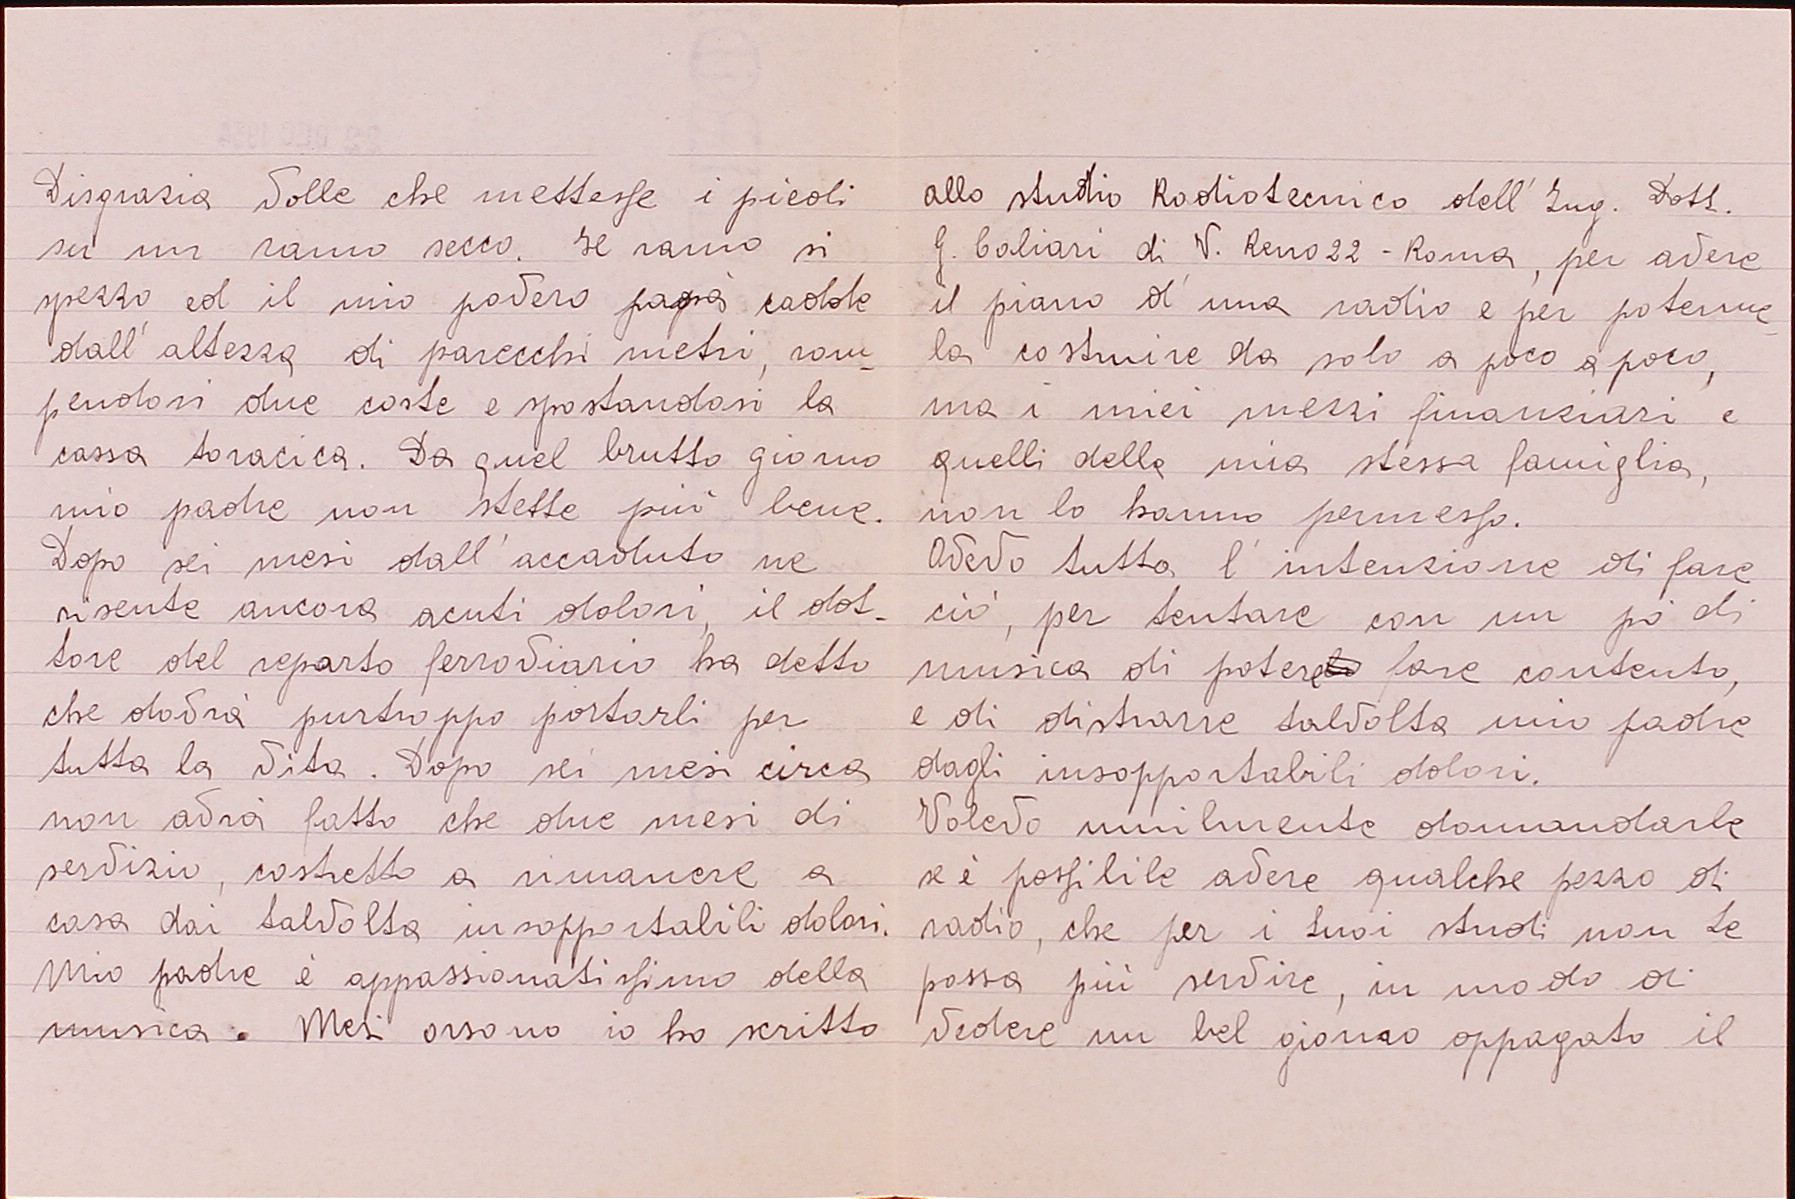 Disgrazia volle che mettesse i piedi
su un ramo secco. Il ramo si
spezzo ed il mio povero papà cadde
dall'altezza di parecchi metri, rom-
pendosi due coste e spostandosi la
cassa toracica. Da quel brutto giorno
mio padre non stette più bene.
Dopo sei mesi dall'accaduto ne
risente ancora acuti dolori, il dot-
tore del reparto ferroviario ha detto
che dovrà purtroppo portarli per
tutta la vita. Dopo sei mesi circa
non avrà fatto che due mesi di
servizio, costretto a rimanere a
casa dai talvolta insopportabili dolori.
Mio padre è appassionatissimo della
musica. Mesi orsono io ho scritto
allo studio Radiotecnico dell'Ing. Dott.
G. Caliari di V. Reno 22 - Roma, per avere
il piano d'una radio e per poterme-
la costruire da solo a poco a poco,
ma i miei mezzi finanziari e
quelli della mia stessa famiglia,
non lo hanno permesso.
Avevo tutta l'intenzione di fare
ciò, per tentare con un pò di
musica di potere fare contento,
e di distrarre talvolta mio padre
dagli insopportabili dolori.
Volevo umilmente domandarle
se è possibile avere qualche pezzo di
radio, che per i tuoi studi non te
possa più servire, in modo di
vedere un bel giorno appagato il